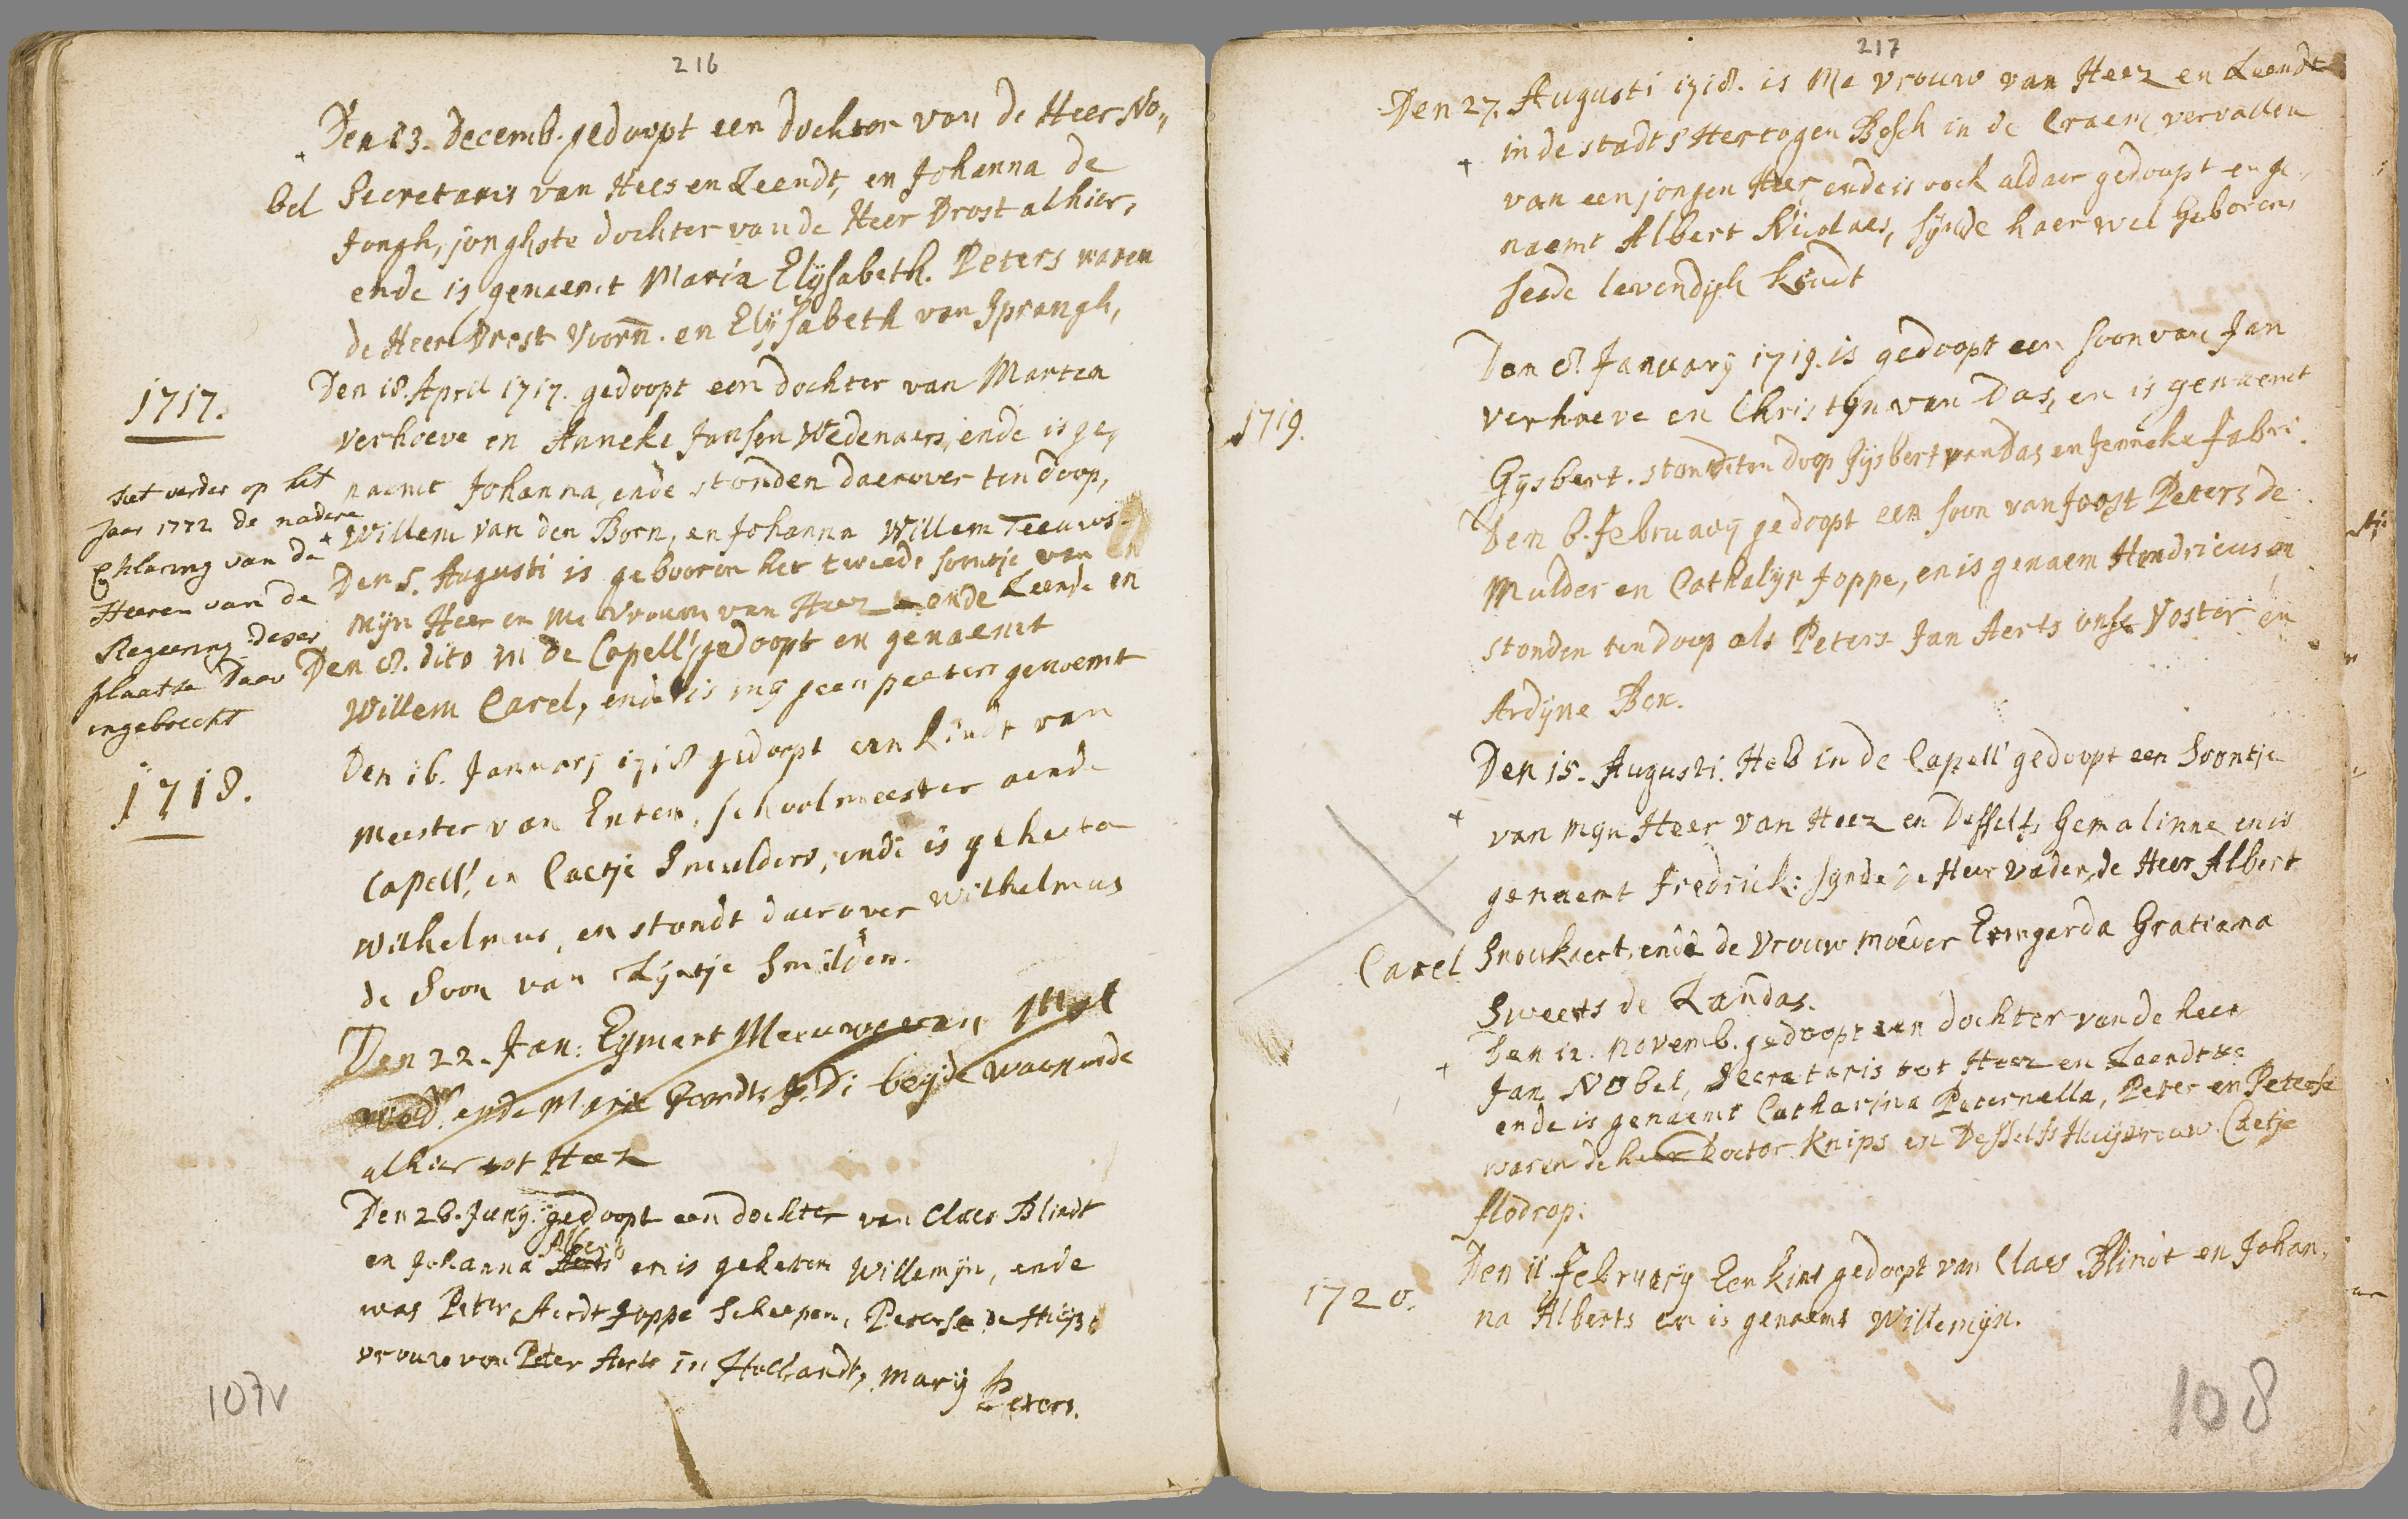 216
Den 13. Decemb. gedoopt een dochter van de Heer No„
bel Secretaris van Hees en Leendt, en Johanna de
Jongh, jonghste dochter van de Heer Drost alhier,
ende is genaemt Maria Elysabeth. Peters waren
de Heer Drost Voorn. en Elysabeth van Sprangh,
1717.
Den 18. April 1717. gedoopt een dochter van Marten
Verhoeve en Anneke Jansen Wedenaers, ende is ge„
naemt Johanna, ende stonden daerover ten doop,
Willem van den Born, en Johanna Willem Teeuws
siet verder op het
Jaar 1772 de nadere
Erklaring van de
Heeren van de
Regeering deser
plaatse Daer
ingebrocht
+ Den 5. Augusti is gebooren het tweede soontje van
mijn Heer en Me Vrouw van Heez ende Leende en
Den 8. dito in de Capell' gedoopt en genaemt
Willem Carel, ende is mij geen peeters genoemt
1718.
Den 16. January 1718 gedoopt een kindt van
Meester van Enten, schoolmeester aende
Capell', en Caetje Smulders, ende is geheeten
Wilhelmus, en stondt daerover Wilhelmus
de Soon van Lijntje Smilden.
Den 22. Jan: Eymert Meeuws van Mol
Wed.r ende Marie Geordts J.D: beijde woonende
alhier tot Heez
Den 26. Juny. gedoopt een dochter van Claes Blindt
Alberts
en Johanna Aerts en is geheeten Willemijn, ende
was Peter Aerdt Joppe Schepen, Peterse de Huijs„
vrouw van Peter Aerts in Hollandt, Marij
Peters.
107v
217
Den 27. Augusti 1718. is Me Vrouw van Heez en Leendt
+ in de stadt s'Hertogen Bosch in de Craem vervallen
van een jongen Heer ende is oock aldaer gedoopt en ge„
naemt Albert Nicolaes, sijnde haer wel Geboorens
sesde levendigh kindt
1719.
Den 8. January 1719. is gedoopt een soon van Jan
Verhoeve en Christyn van Das, en is genaemt
Gysbert. stonden ten doop Gijsbert van Das en Jenneke Fabri.
Den 6. February gedoopt een soon van Joost Peters de
Mulder en Cathalyn Joppe, en is genaem Hendricus en
stonden ten doop als Peters Jan Aerts onse Voster en
Ardyne Box.
Den 15. Augusti. Heb in de Capell' gedoopt een Soontje
+ van Mijn Heer van Heez en Desselfs Gemalinne en is
genaemt Fredrick: synde de Heer Vader, de Heer Albert
Carel Snouckaert, ende de Vrouw moeder Ermgarda Gratiana
Sweerts de Landas.
+ Den 12. Novemb. gedoopt een dochter van de heer
Jan Nobel, Secretaris tot Heez en Leendt etc
ende is genaemt Catharina Peternella, Peter en Peterse
waren de heer Doctor Knips en Desselfs Huijsvrouw. Caetje
Flodrop.
1720.
Den 11 February Een kint gedoopt van Claes Blindt en Johan„
na Alberts en is genaemt Willemijn.
108